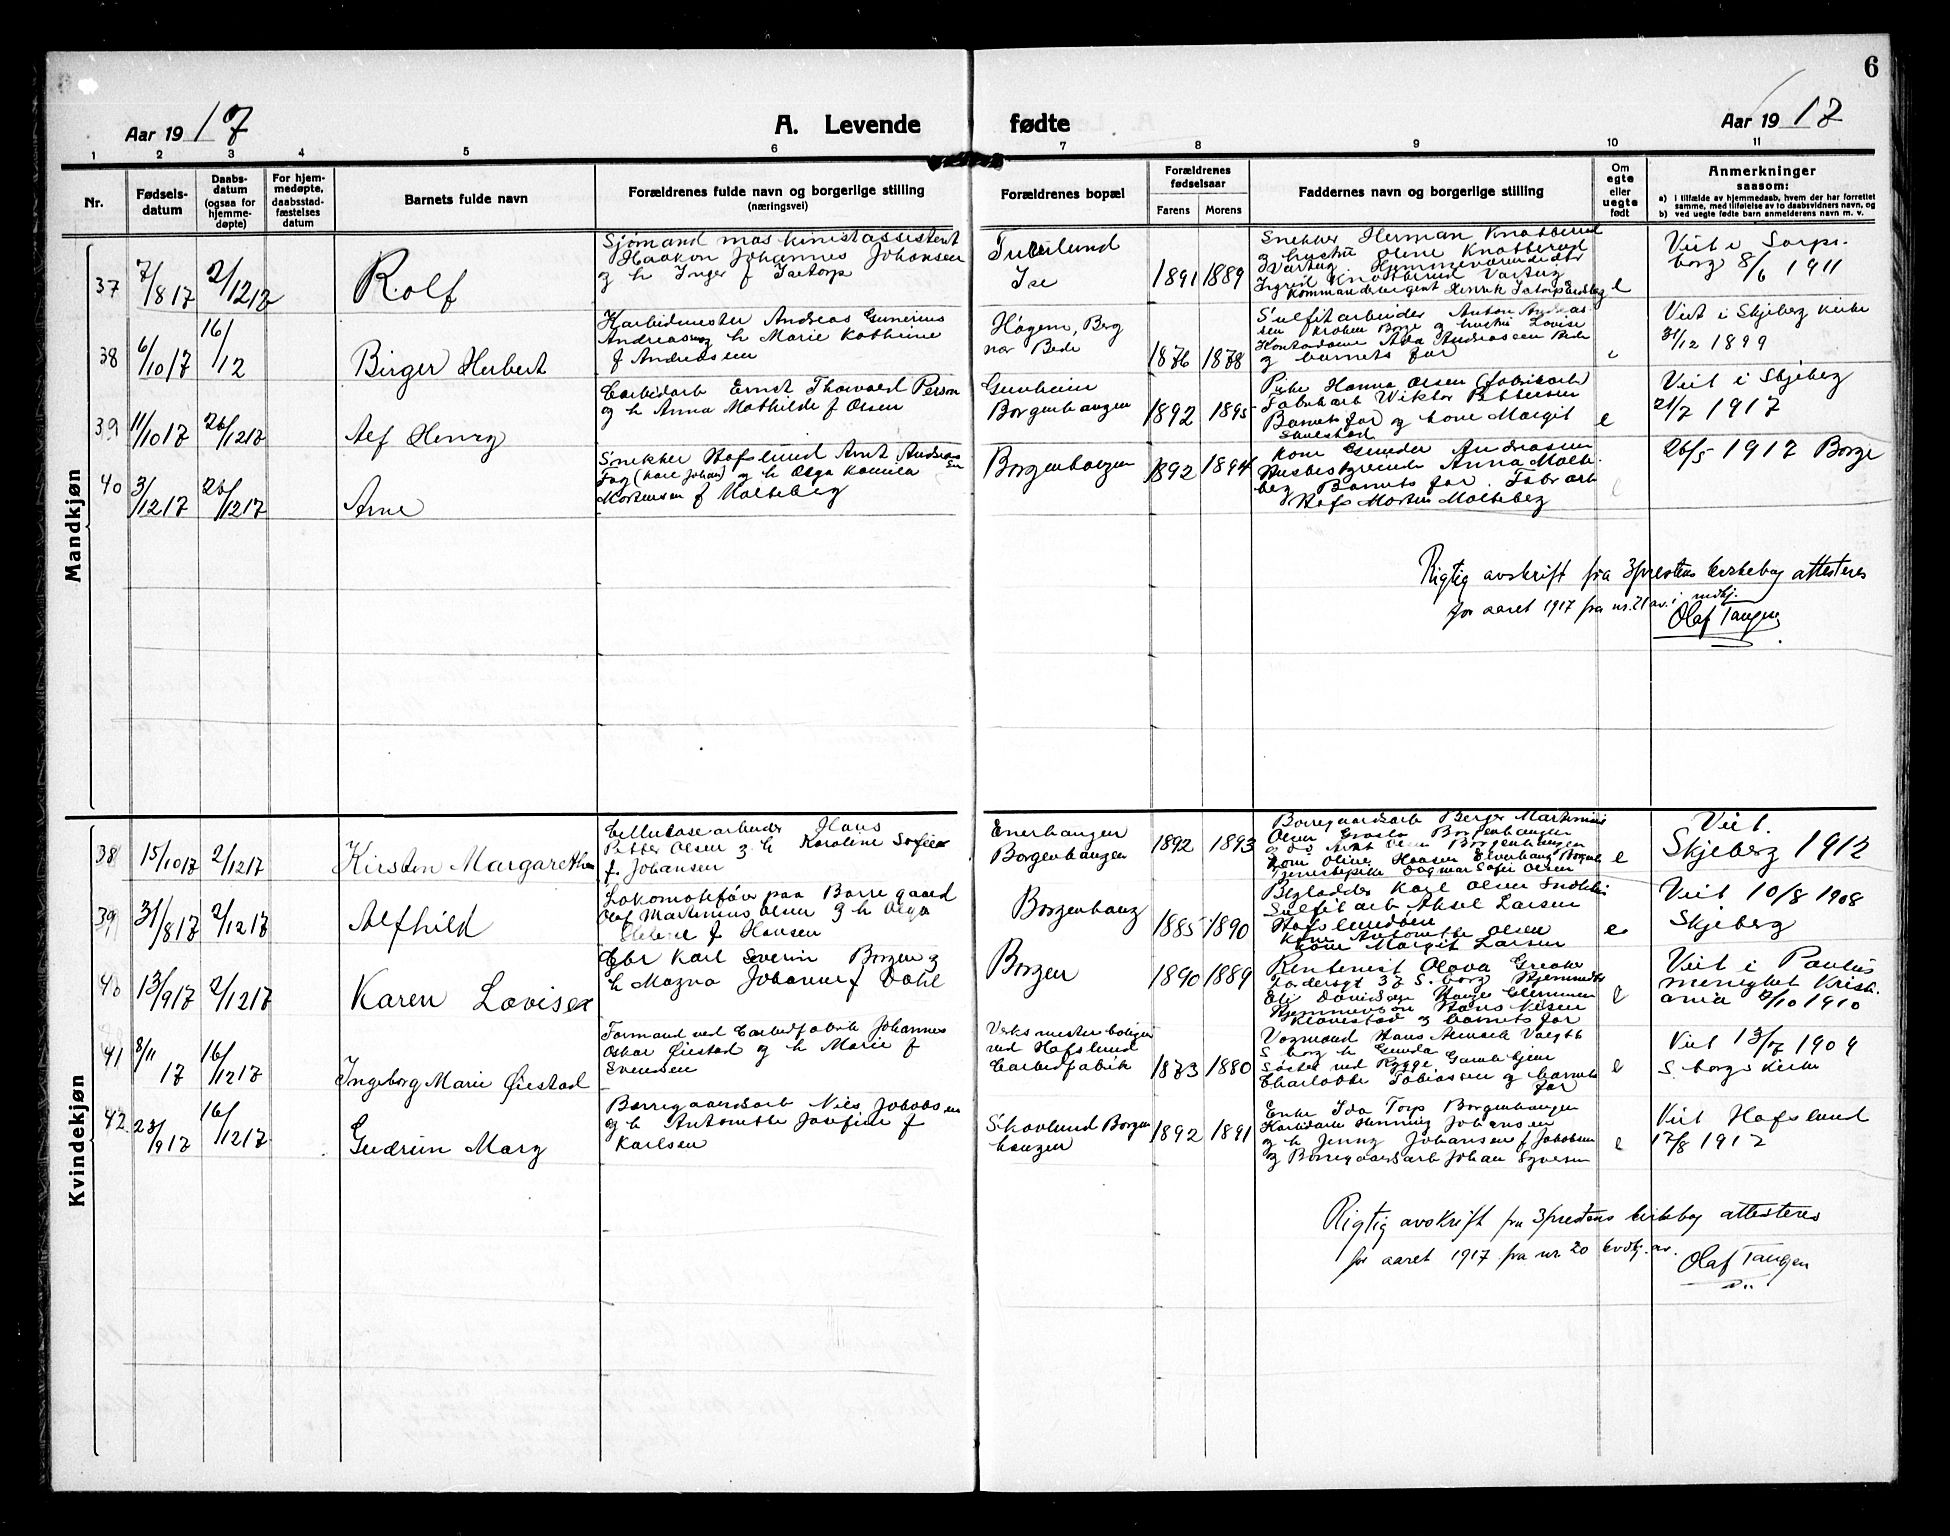 6
Aar 1917
A. Levende fødte
Aar 1917
1 2 3 4 5 6 7 8 9 10 11
Nr.
Fødsels-
datum
Daabs-
datum
(ogsaa for
hjemme-
døpte)
For hjem-
medøpte,
daabsstad-
fæstelses
datum
Barnets fulde navn
Forældrenes fulde navn og borgerlige stilling
(næringsvei)
Forældrenes bopæl
Forældrenes
fødselsaar
Farens Morens
Faddernes navn og borgerlige stilling
Om
egte
eller
uegte
født
Anmerkninger
saasom:
a) i tilfælde av hjemmedaab, hvem der har forrettet
samme, med tilføielse av to daabsvidners navn, og
b) ved uegte fødte barn anmelderens navn m. v.
Mandkjøn
37 7/8 17 2/12 17 Rolf
Sjømand maskinistassistent
Haakon Johannes Johansen
og h Inger f Isetorp
Ise
1891 1889
Snekker Herman Knatterud
og hustru Olene Knatterud
Ingrid Knatterud Varteig
e
Viet i Sarps-
borg 8/6 1911
38 6/10 17 16/12 Birger Herbert
Karbidmester Andreas Gunerius
Andreassen og h Marie Kathrine
f Andreassen
Høgem, Berg
nær Bede
1876 1878
Sulfitarbeider Anton Andreas-
sen Kraben Borge og hustru Lovise
Kontordame Ada Andreassen
og barnets far
e
Viet i Skjeberg kirke
31/12 1899
39 11/10 17 26/12 17 Alf Henry
Carbidarb Ernst Thorvald Person
og h Anna Mathilde f Olsen
Borgenhaugen
1892 1895
Pike Hanna Olsen (fabrikarb)
Fabrikarb Wiktor Pettersen
Barnets far og kone Margit
e
Viet i Skjeberg
21/7 1917
40 3/12 17 26/12 17 Arne
Snekker Hafslund Arnt Andreas
Fag (Karl Johan) og h Olga Kamilla
Mortensen f Molteberg
Borgenhaugen
1892 1894
Kone Gunda Andreasen
Husbestyrerinde Anna Molte-
berg Barnets far. Fabr arb
Hafs Morten Molteberg
e
26/5 1917 Borge
Rigtig avskrift fra 3 prestens kirkebog attesteres
for aaret 1917 fra nr. 21 av. i mdkj.
Olaf Tangen
Kvindekjøn
38 15/10 17 2/12 17 Kirsten Margarethe
Cellulosearbeider Hans
Petter Olsen og h Karoline Sofie
f Johansen
Enerhaugen
Borgenhaugen
1892 1893
Borregaardsarb Berger Martinius
Olsen Borgenhaugen
Kone Oline Hansen Enerhaug Borgenh
Tjenestepike Dagmar Sofie Olsen
e
Viet.
Skjeberg 1912
39 31/8 17 2/12 17 Alfhild
Lokomotivfører paa Borregaard
Olaf Martinius Olsen og h Olga
f Hansen
Borgenhaug
1885 1890
Karl Olsen
Sulfitarb Aksel Larsen
Hafslundsøen
Kone Antonette Olsen
Kone Margit Larsen
e
Viet 10/8 1908
Skjeberg
40 13/9 17 2/12 17 Karen Lovise
Eier Karl Severin Borgen og
h Magna Johanne f Dahl
Borgen
1890 1889
Rentenist Olava Greaker
og barnets far
e
Viet i Paulus
menighet Kristi-
ania 8/10 1910
41 8/11 17 16/12 17 Ingeborg Marie Øiestad
Formand ved Carbidfabrik Johannes
Oskar Øiestad og h Marie f
Evensen
Verksmesterboligen
ved Hafslund
Carbidfabrik
1873 1880
Vognmand Hans
S borg h Gunda
Søster ved Rygge Gamlehjem
Charlotte Tobiassen og barnets
far
e
Viet 13/7 1904
S. borgs kirke
42. 23/9 17 16/12 17 Gudrun Mary
Borregaardsarb Nils Jakobsen
og h Antonette Josefine f
Karlsen
Skovlund Borgen-
haugen
1892 1891
Enke Ida Torp Borgenhaugen
Karbidarb Henning Johansen
og h Jenny Johansen f Jakobsen
og Borregaardsarb Johan Syversen
e
Viet Hafslund
17/8 1917
Rigtig avskrift fra 3 prestens kirkebog attesteres
for aaret 1917 fra nr. 20 kvdkj. av.
Olaf Tangen